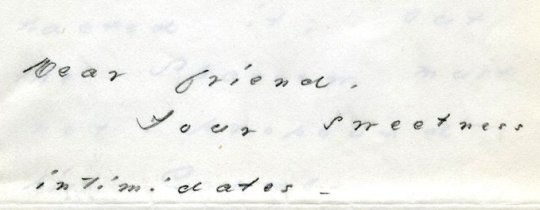 Dear friend.
Your sweetness
intimidates -